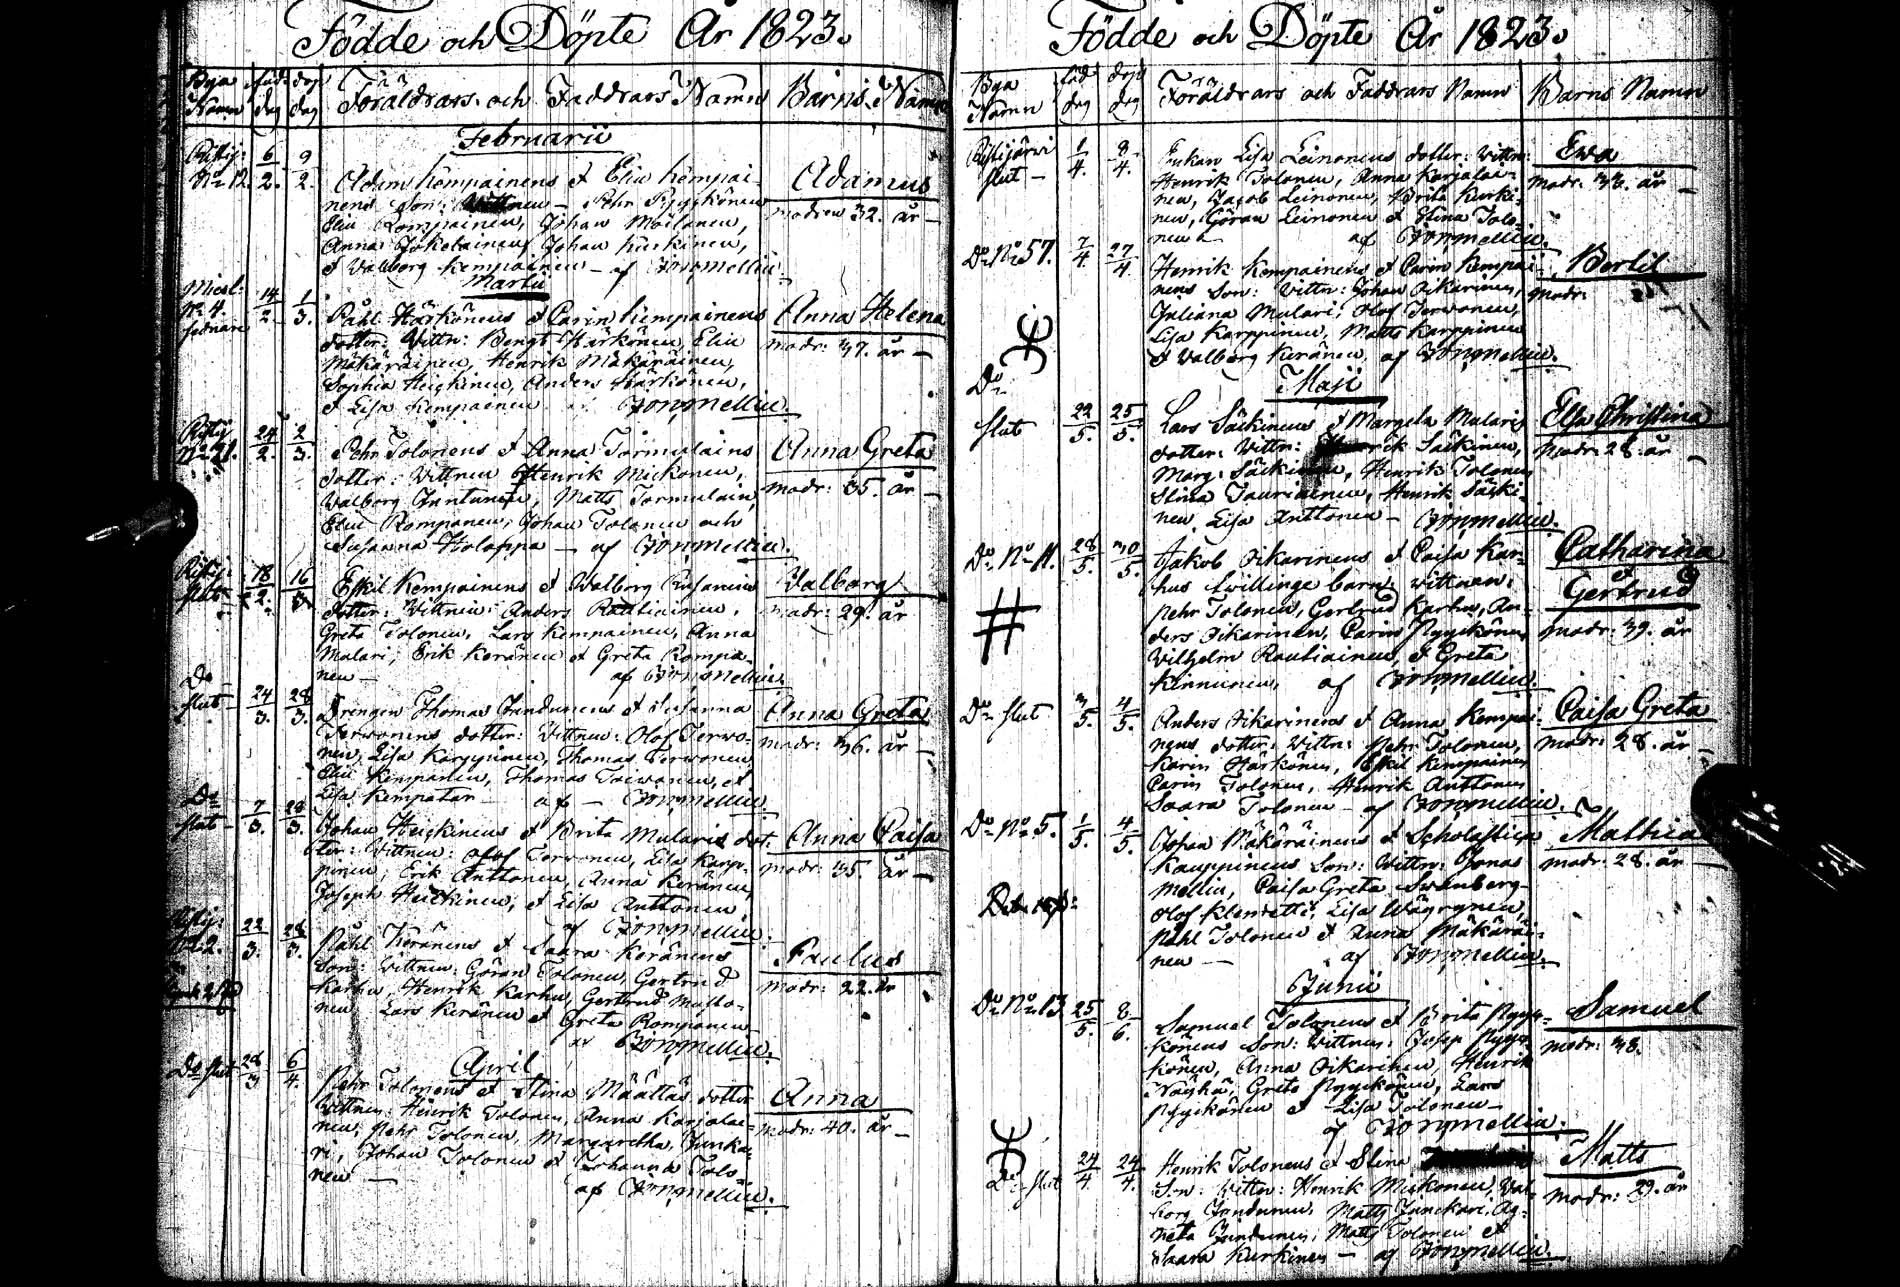 Födde och Döpte År 1823.
Bya Namn
föd. dag
döp dag
Föräldrars och Faddrars Namn
Barns Namn
Februarii
Ristij: No 12.
6/2. 9/2.
Adam Kempainens et Elin Kempai-
nens Son: Wittnen - Pehr Pyykkönen
Elin Kompainen, Johan Moilanen,
Anna Jokelainen, Johan Kurkinen,
et Walborg Kempainen - af Jon: Mellin.
Adamus
modren 32. år -
Martii
No 4.
14/2. 1/3.
Påhl Härkönens et Carin Kempainens
dotter: Wittn: Bengt Härkönen, Elin
Mäkäräinen, Henrik Mäkäräinen,
Sophia Heickinen, Anders Härkönen,
et Lisa Kempainen af Jon: Mellin.
Anna Helena
modr: 37. år -
Ristij No 21.
24/2. 2/3.
Pehr Tolonens et Anna Tormulains
dotter: Wittnen Henrik Mickonen,
Walborg Juntunen, Matts Tormulain,
Elin Romponen, Johan Tolonen och
Susanna Holappa - af Jon: Mellin.
Anna Greta
modr: 35. år -
Ristij: slut -
18/2. 16/3.
Eskil Kempainens et Walborg
dotter: Wittnen: Anders Rautiainen,
Greta Tolonen, Lars Kempainen, Anna
Mulari, Erik Keränen et Greta Rompa-
nen - af Jon: Mellin.
Walborg
modr: 29. år
Do slut -
24/3. 28/3.
Drengen Thomas Jundunens et Susanna
Terwonens dotter: Wittnen: Olof Terwo-
nen, Lisa Karppinen, Thomas Terwonen,
Elin Kempainen, Thomas Terwonen, et
Lisa Kempatar af - Jon: Mellin.
Anna Greta
modr: 36. år -
Do slut -
7/3. 28/3.
Johan Heickinens et Brita Mularis dot-
ter: Wittnen: Olof Terwonen, Lisa Karp-
pinen, Erik Anttonen, Anna Keränen,
Joseph Heickinen, et Lisa Anttonen,
af Jon: Mellin.
Anna Caisa
modr: 35. år -
Ristij: No 2.
22/3. 28/3.
Påhl Keränens et Saara Keränens
Son: Wittnen: Göran Tolonen, Gertrud
Karhu, Henrik Karhu, Gertrud Mullo-
nen Lars Keränen et Greta Romponen -
af Jon: Mellin.
Paulus
modr: 22. år
April
Do slut
28/3 6/4.
Pehr Tolonens et Stina Määttäs dotter
Wittnen: Henrik Tolonen, Anna Karjalai-
nen, Pehr Tolonen, Margaretha Junka-
ri, Johan Tolonen et Johanna Tolo-
nen - af Jon: Mellin.
Anna
modr: 40. år -
Födde och Döpte År 1823.
Bya Namn
föd dag
döp dag
Föräldrars och Faddrars Namn
Barns Namn
Ristijärvi slut -
1/4. 8/4.
Enkan Lisa Leinonens dotter: Wittn:
Henrik Tolonen, Anna Karjalai-
nen, Jacob Leinonen, Brita Kurki-
nen, Göran Leinonen et Stina Tolo-
nen - af Jon: Mellin.
Ewa
modr: 36. år -
Do No 57.
7/4. 27/4.
Henrik Kempainens et Carin Kempai-
nens Son: Wittn: Johan Oikarinen,
Juliana Mulari, Olof Terwonen,
Lisa Karppinen, Matts Karppinen
et Walborg Keränen af Jon: Mellin.
Bertil
modr:
Maji
Do slut
22/5. 25/5.
Lars Säckinens et Margeta Mularis
dotter: Wittn: Henrik Säckinen,
Marg: Säckinen, Henrik Tolonen
Stina Tauriainen, Henrik Säcki-
nen, Lisa Anttonen - Jon: Mellin.
Elsa Christina
modr: 28. år -
Do No 11.
28/5. 30/5.
Jakob Oikarinens et Caisa Kar-
hus twillinge barn: wittnen:
Pehr Tolonen, Gertrud Karhu, An-
ders Oikarinen, Carin Pyykkönen
Wilhelm Rautiainen, et Greta
Kinnunen, af Jon: Mellin.
Catharina
et
Gertrud
modr: 39. år
Do slut
3/5. 4/5.
Anders Oikarinens et Anna Kempai-
nens dotter: Wittn: Pehr Tolonen,
Karin Härkönen, Eskil Kempainen
Carin Tolonen, Henrik Anttonen
Saara Tolonen - af Jon: Mellin.
Caisa Greta
modr: 28. år -
Do No 5.
1/5. 4/5.
Johan Mäkäräinens et Scholastica
Kauppinens Son: Wittn: Jonas
Mellin, Caisa Greta Swanberg
Olof Klemetti, Lisa Wäyrynen,
Påhl Tolonen et Anna Mäkäräi-
nen - af Jon: Mellin.
Mathias
modr: 28. år -
Junii
Do No 13
25/5. 8/6.
Samuel Tolonens et Brita Pyyk-
könens Son: Wittnen: Josep Pyyk-
könen, Anna Oikarinen, Henrik
Greta Pyykkönen, Lars
Pyykkönen et Lisa Tolonen -
af Jon: Mellin.
Samuel
modr: 38.
Do slut
24/4. 24/4.
Henrik Tolonens et Stina
Son: Wittn: Henrik Mickonen, Wal-
borg Jundunen, Matts Junckari, Ag-
neta Jundunen, Matts Tolonen et
Saara Kurkinen - af Jon: Mellin.
Matts
modr: 29. år